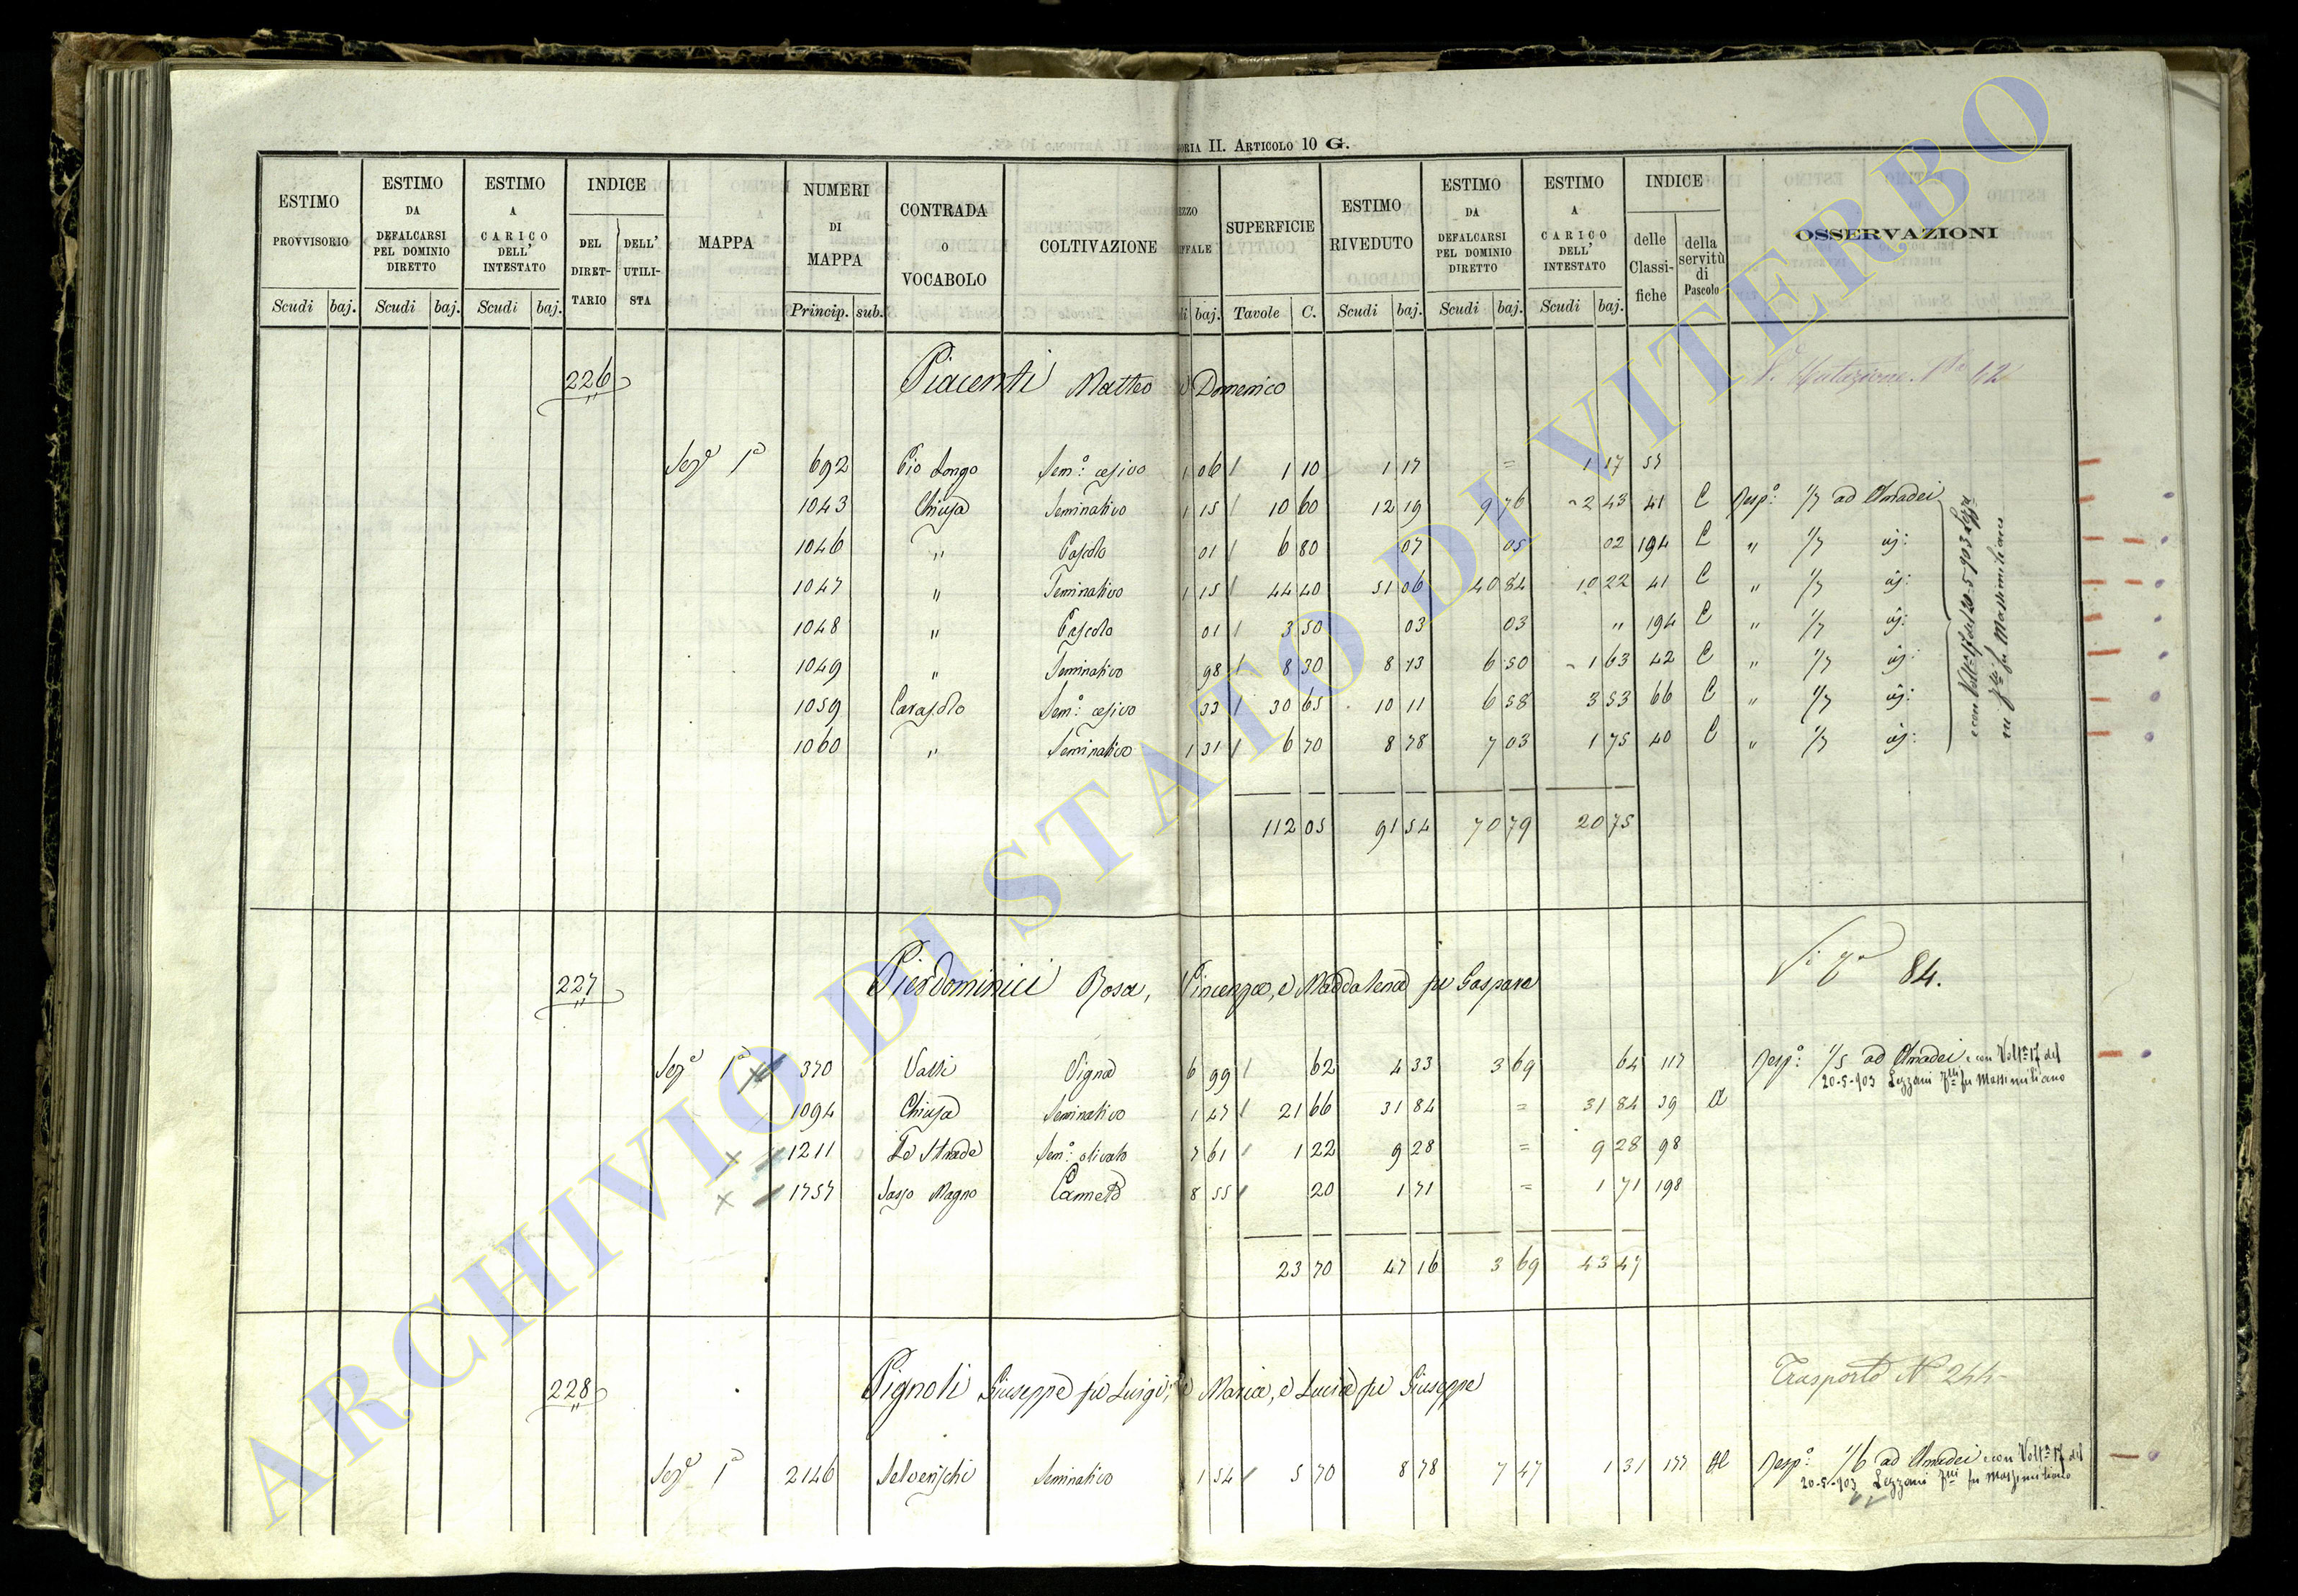 ORIA II. ARTICOLO 10 G.
ESTIMO PROVVISORIO | ESTIMO DA DEFALCARSI PEL DOMINIO DIRETTO | ESTIMO A CARICO DELL' INTESTATO | INDICE | MAPPA | NUMERI DI MAPPA | CONTRADA O VOCABOLO | COLTIVAZIONE | EZZO IFFALE | SUPERFICIE | ESTIMO RIVEDUTO | ESTIMO DA DEFALCARSI PEL DOMINIO DIRETTO | ESTIMO A CARICO DELL' INTESTATO | INDICE | OSSERVAZIONI
DEL DIRETTARIO | DELL' UTILISTA | delle Classifiche | della servitù di Pascolo
Scudi | baj. | Scudi | baj. | Scudi | baj. | Princip. | sub. | di | baj. | Tavole | C. | Scudi | baj. | Scudi | baj. | Scudi | baj.
226 Piacenti Matteo e Domenico V. Mutazione 12
Sez.e 1a 692 Pio Longo Sem.o 1 06 1 10 1 17 = 1 17 57
1043 Chiusa Seminativo 1 15 10 60 12 19 9 76 2 43 41 C Resp.o 1/5 ad Amadei
1046 " Pascolo 01 6 80 07 05 02 194 C " 1/5
1047 " Seminativo 1 15 44 40 51 06 40 84 10 22 41 C " 1/5
1048 " Pascolo 01 3 50 03 03 " 194 C " 1/5
1049 " Seminativo 98 8 30 8 13 6 50 1 63 42 C " 1/5
1059 Sem.o 33 30 65 10 11 6 58 3 53 66 C " 1/5
1060 " Seminativo 1 31 6 70 8 78 7 03 1 75 40 C " 1/5
e con Volt.a 17 del 20-5-903 Lezza
ni f.lli fu Massimiliano
112 05 91 54 70 79 20 75
227 Pierdominici Rosa, Vincenza, e Maddalena fu Gaspare 84.
Sez.e 1a 370 Valli Vigna 6 99 62 4 33 3 69 64 117 Resp.o 1/5 ad Amadei e con Volt.a 17 del
20-5-903 Lezzani f.lli fu Massimiliano
1094 Chiusa Seminativo 1 47 21 66 31 84 = 31 84 39 A
1211 Le Strade Sem.o olivato 7 61 1 22 9 28 = 9 28 98
1757 Sasso Magno Canneto 8 55 20 1 71 = 1 71 198
23 70 47 16 3 69 43 47
228 Pignoli Giuseppe fu Luigi, e Maria, e Lucia fu Giuseppe Trasporto N 244
Sez.e 1a 2146 Seminativo 1 54 5 70 8 78 7 47 1 31 177 Resp.o 1/6 ad Amadei e con Volt.a 17 del
20-5-903 Lezzani f.lli fu Massimiliano
ARCHIVIO DI STATO DI VITERBO